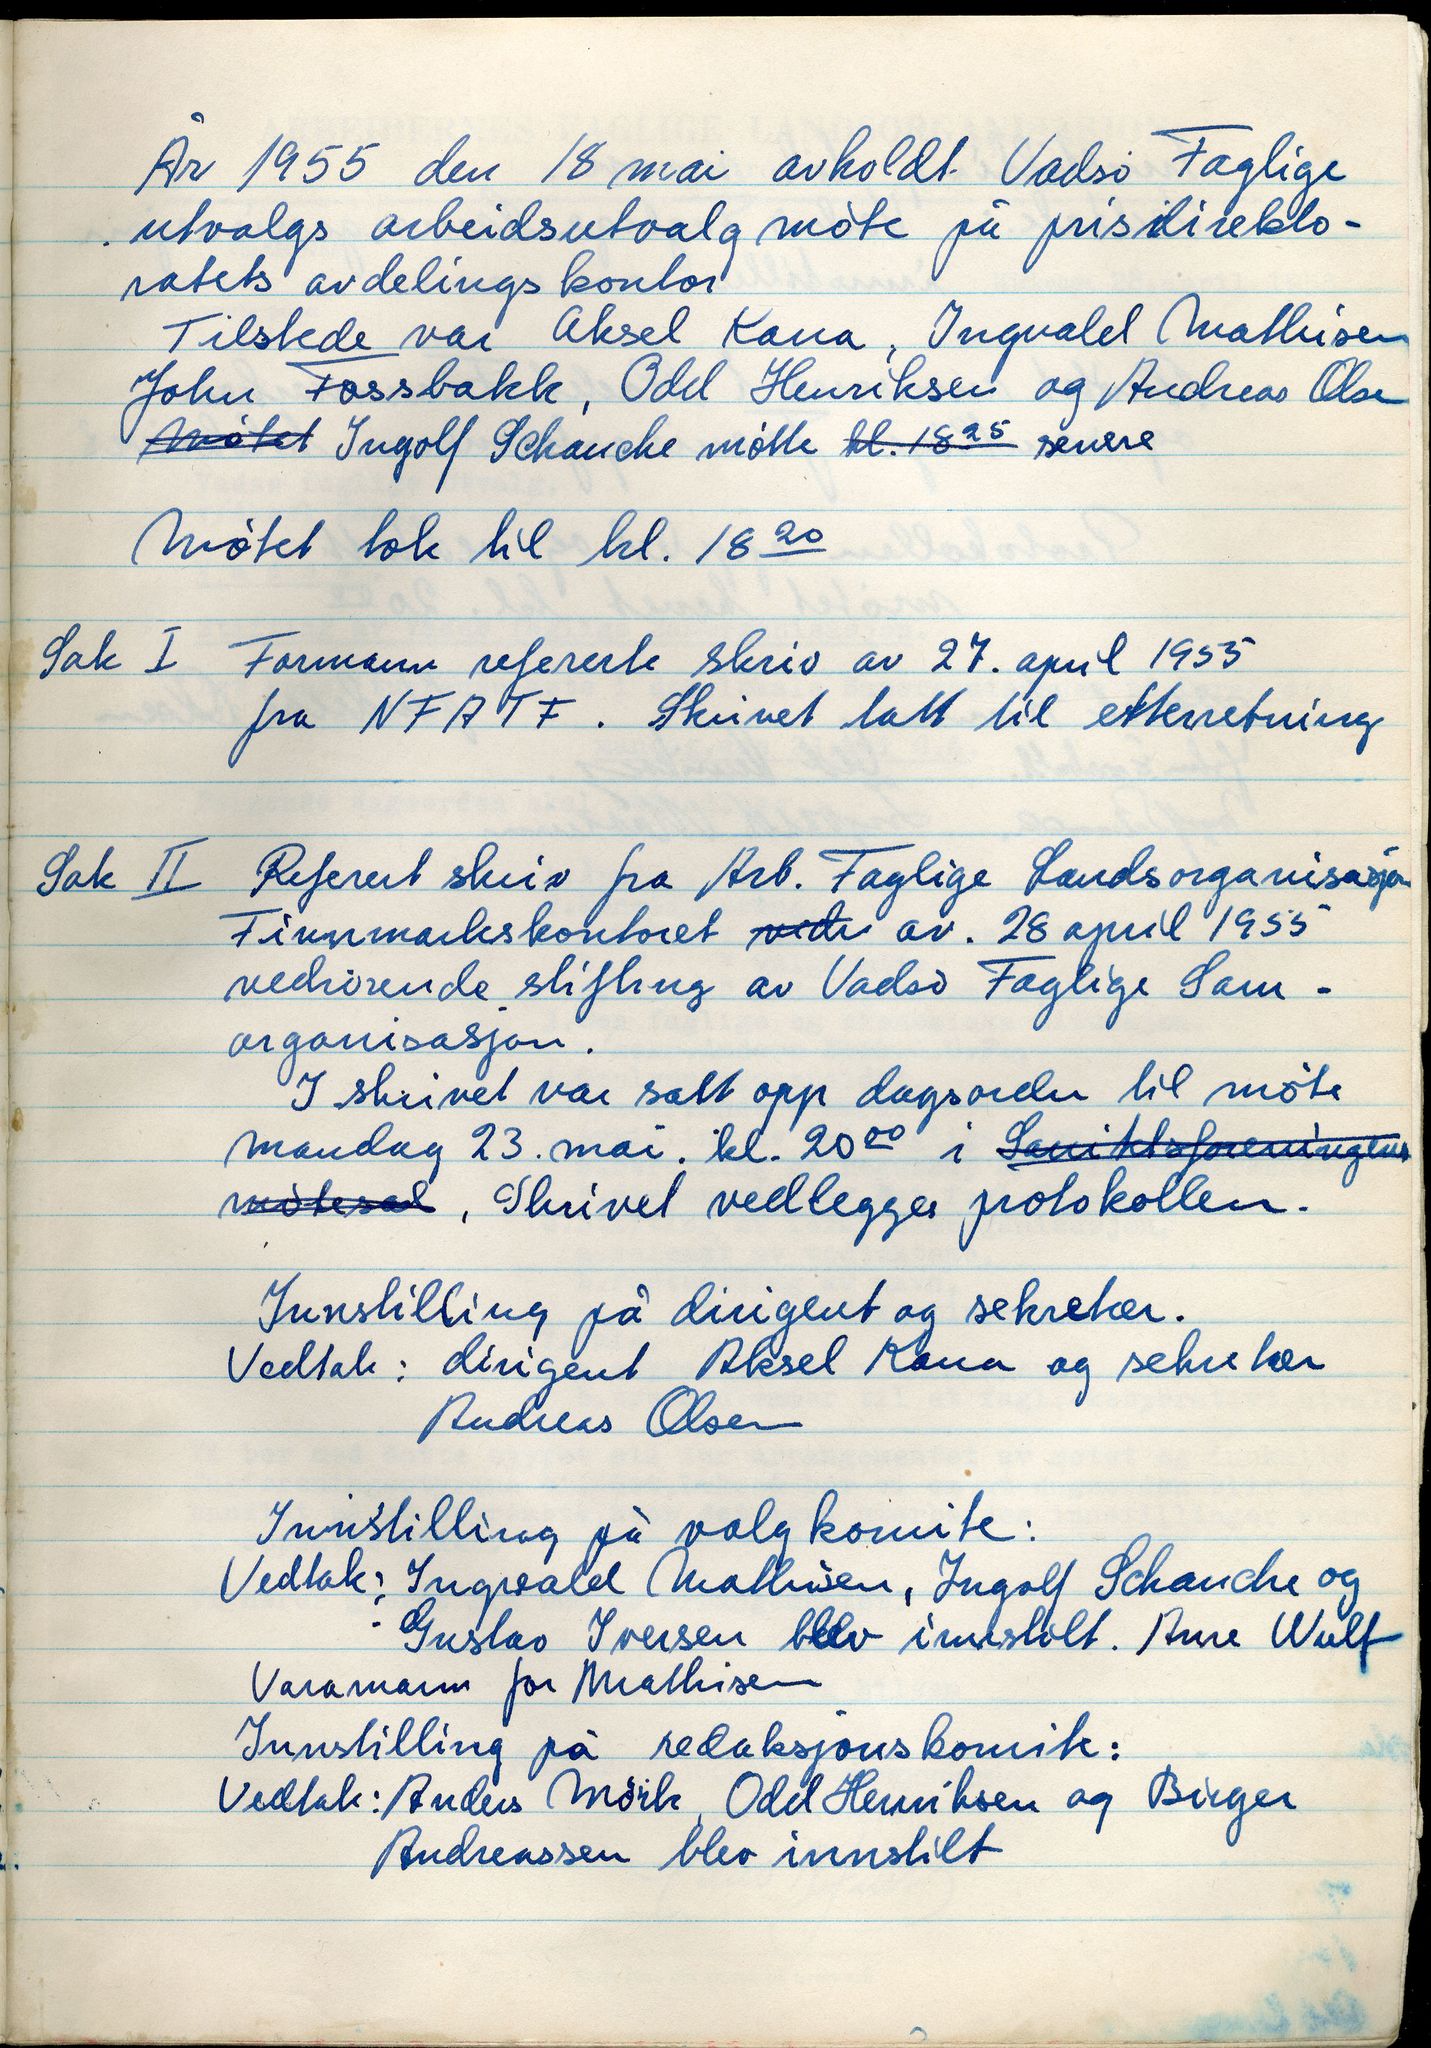 År 1955 den 18 mai avholdt Vadsö Faglige
utvalgs arbeidsutvalg möte på prisdirekto-
ratets avdelingskontor
Tilstede var Aksel Kana, Ingvald Mathisen
John Fossbakk, Odd Henriksen og Andreas Olsen
Mötet Ingolf Schanche mötte kl. 18 25 senere
Mötet tok til kl. 18 20
Sak I Formann refererte skriv av 27. april 1955
fra NFATF. Skrivet tatt til etterretning
Sak II Referert skriv fra Arb. Faglige Landsorganisasjon
Finnmarkskontoret vedr av. 28 april 1955
vedrörende stifting av Vadsö Faglige Sam-
organisasjon.
I skrivet var satt opp dagsorden til möte
mandag 23. mai. kl. 20 00 i Sanitetsforeningens
mötesal, Skrivet vedlegges protokollen.
Innstilling på dirigent og sekretær.
Vedtak: dirigent Aksel Kana og sekretær
Andreas Olsen
Innstilling på valgkomite:
Vedtak: Ingvald Mathisen, Ingolf Schanche og
Gustav Iversen blev innstilt. Arne Wulf
Varamann for Mathisen
Innstilling på redaksjonskomite:
Vedtak: Anders Mörk, Odd Henriksen og Birger
Andreassen blev innstilt